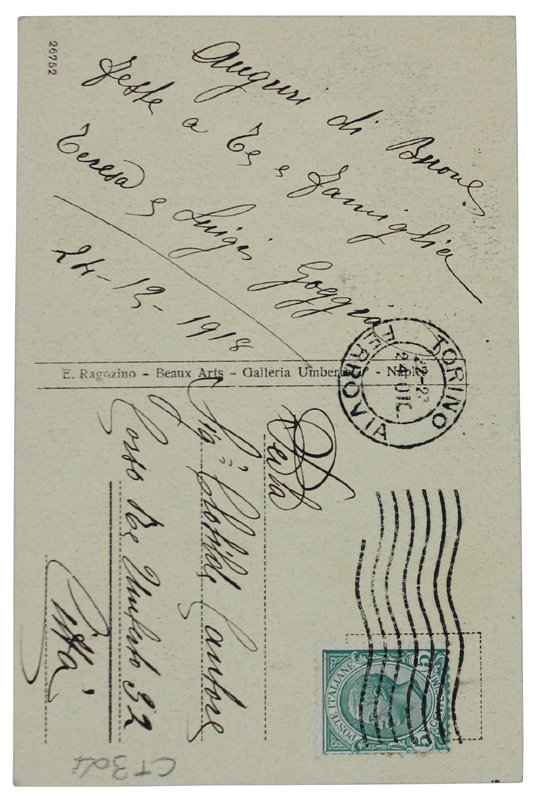 26752
Auguri di Buone
feste a Te e famiglia
Teresa e Luigi Goggia
24-12-1918
E. Ragozino - Beaux Arts - Galleria Umber - Napl
TORINO
FERROVIA
24 DIC
Sig.ª Clotilde Cantore
Corso Re Umberto 32
Città
POSTE ITALIANE
5
5
CT304